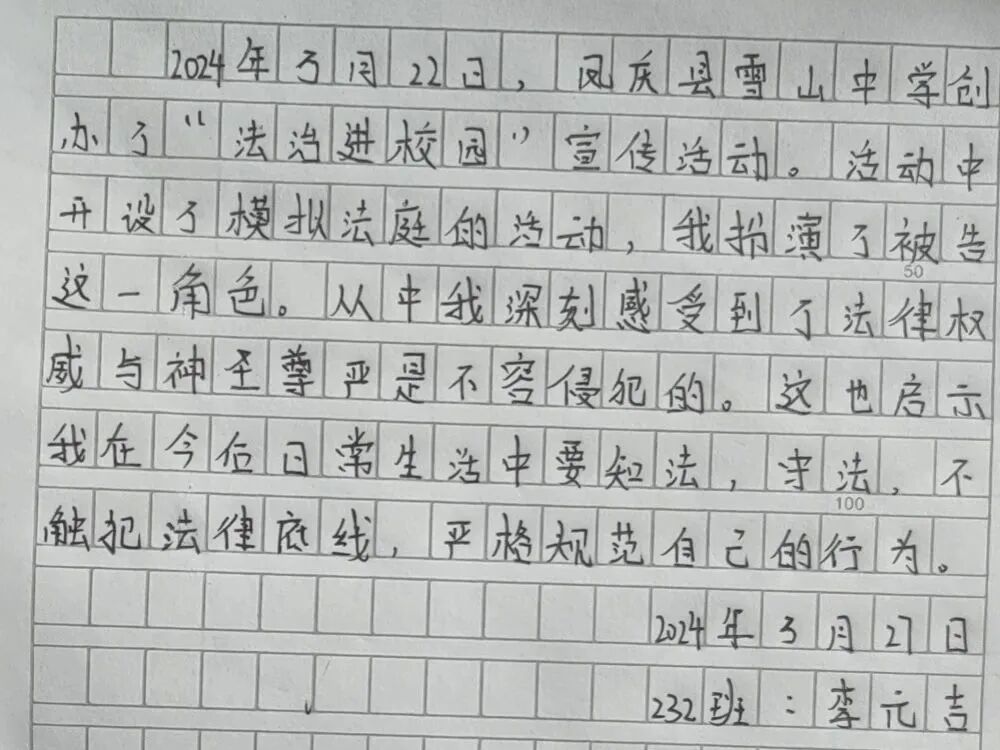 2024年3月22日，凤庆县雪山中学创
办了“法治进校园”宣传活动。活动中
开设了模拟法庭的活动，我扮演了被告
50
这一角色。从中我深刻感受到了法律权
威与神圣尊严是不容侵犯的。这也启示
我在今后日常生活中要知法，守法，不
100
触犯法律底线，严格规范自己的行为。
2024年3月27日
232班：李元吉